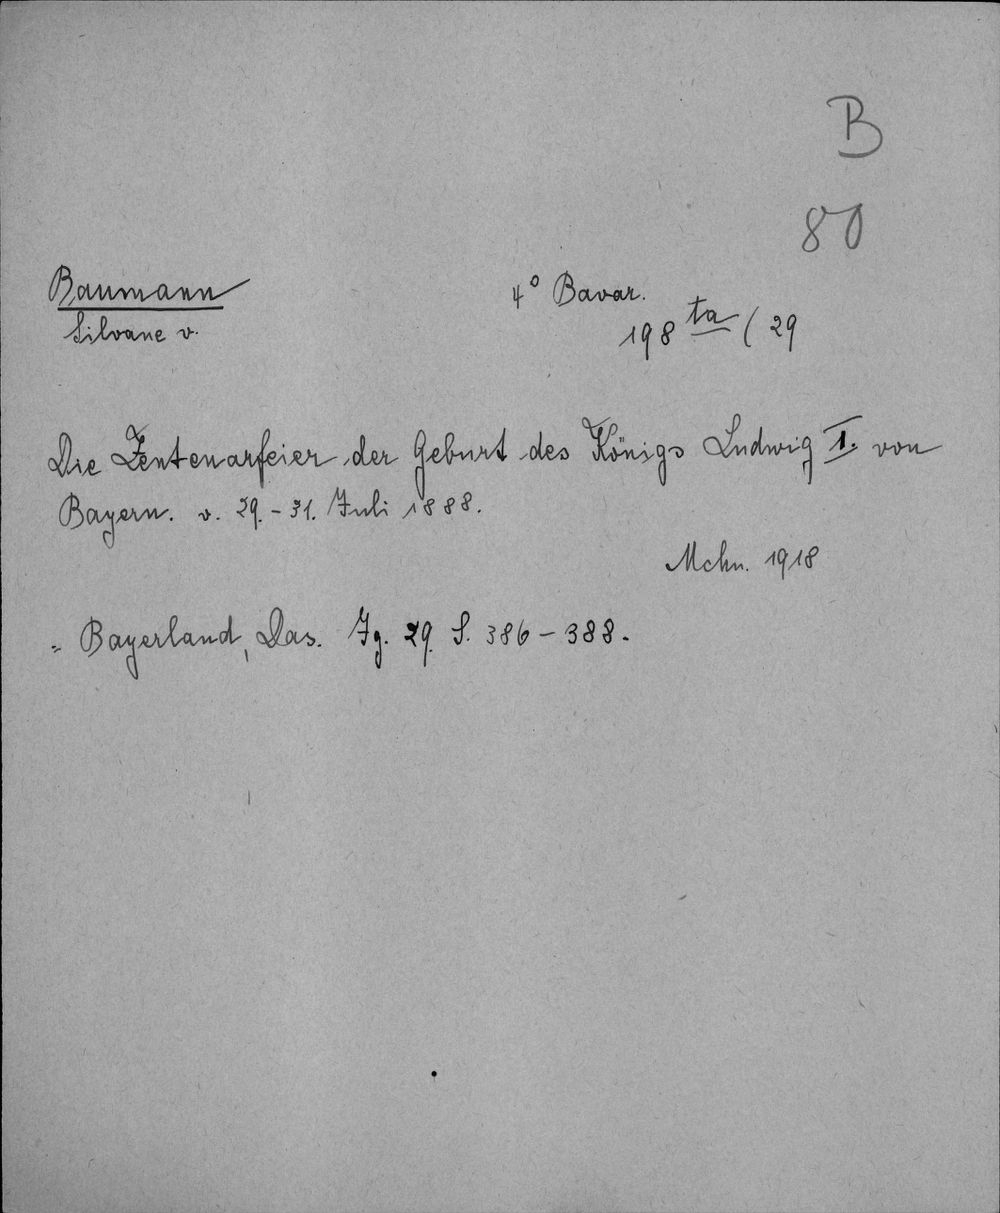 B
80
Baumann
Silvane v.
4° Bavar.
198 ta (29
Die Zentenarfeier der Geburt des Königs Ludwig I. von
Bayern. v. 29.-31. Juli 1888.
Mchn. 1918
= Bayerland, Das. Jg. 29. S. 386-388.